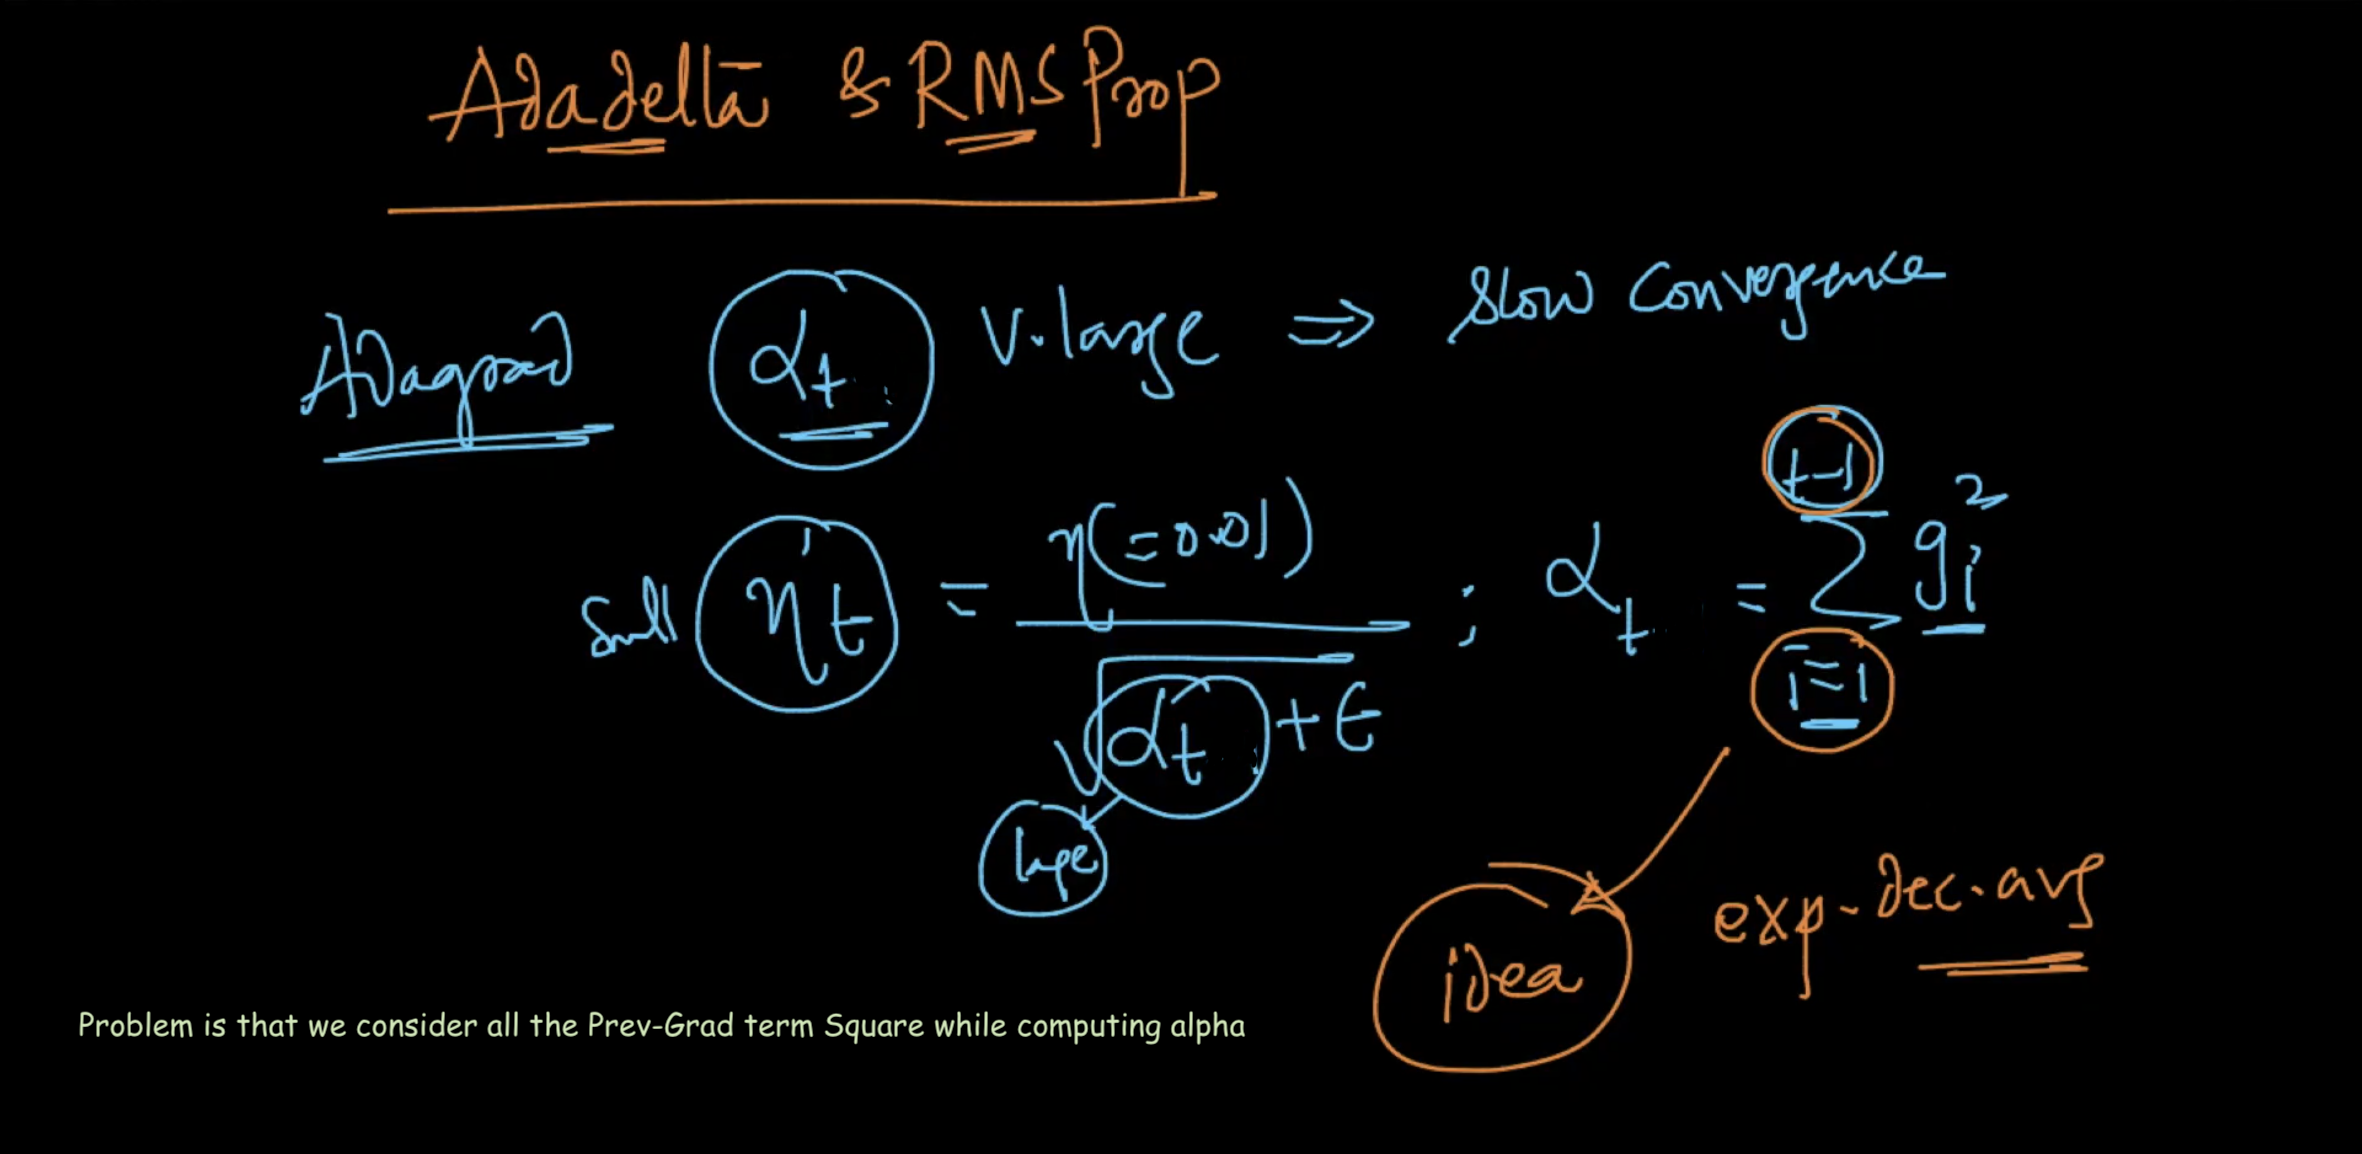 Adadelta & RMSProp
Adagrad αt v.large ⇒ slow convergence
small η't = η(=0.01) / √αt + ε ; αt = Σ_{i=1}^{t-1} gi²
large
idea exp-dec.avg
Problem is that we consider all the Prev-Grad term Square while computing alpha